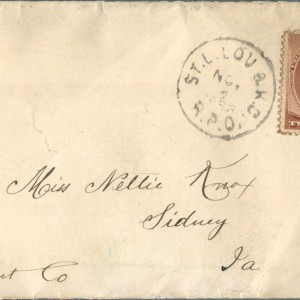 ST. L. LOU & K.C.
NOV
R.P.O.
Miss Nettie Knox
Sidney
Ia
Co